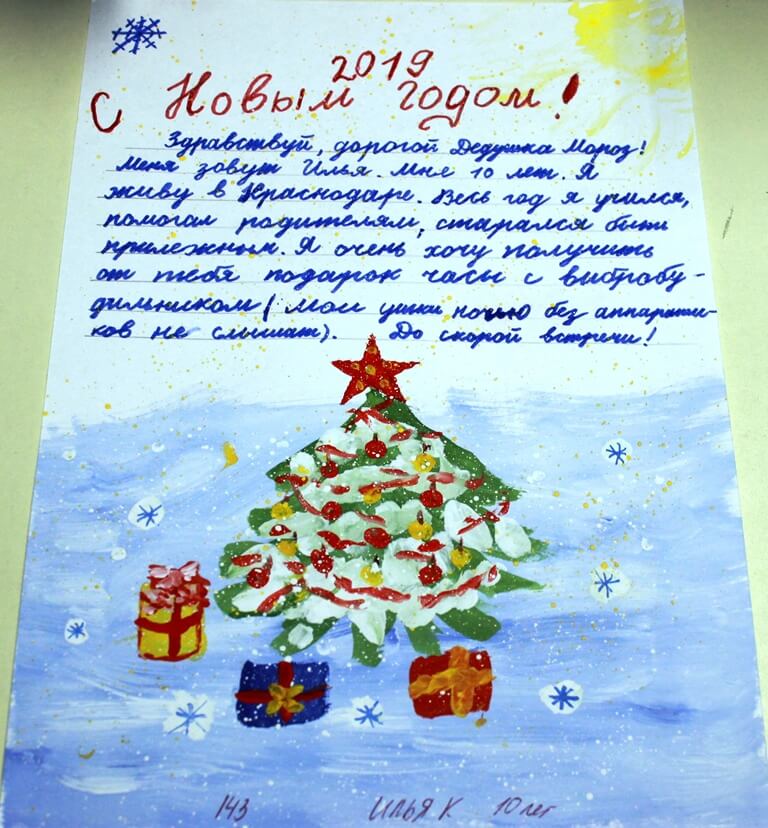 2019
С Новым годом!
Здравствуй, дорогой Дедушка Мороз!
Меня зовут Илья. Мне 10 лет. Я
живу в Краснодаре. Весь год я учился,
помогал родителям, старался быть
прилежным. Я очень хочу получить
от тебя подарок часы с вибробу-
дильником (мои ушки ночью без аппарати-
ков не слышат). До скорой встречи!
143 Илья К 10 лет